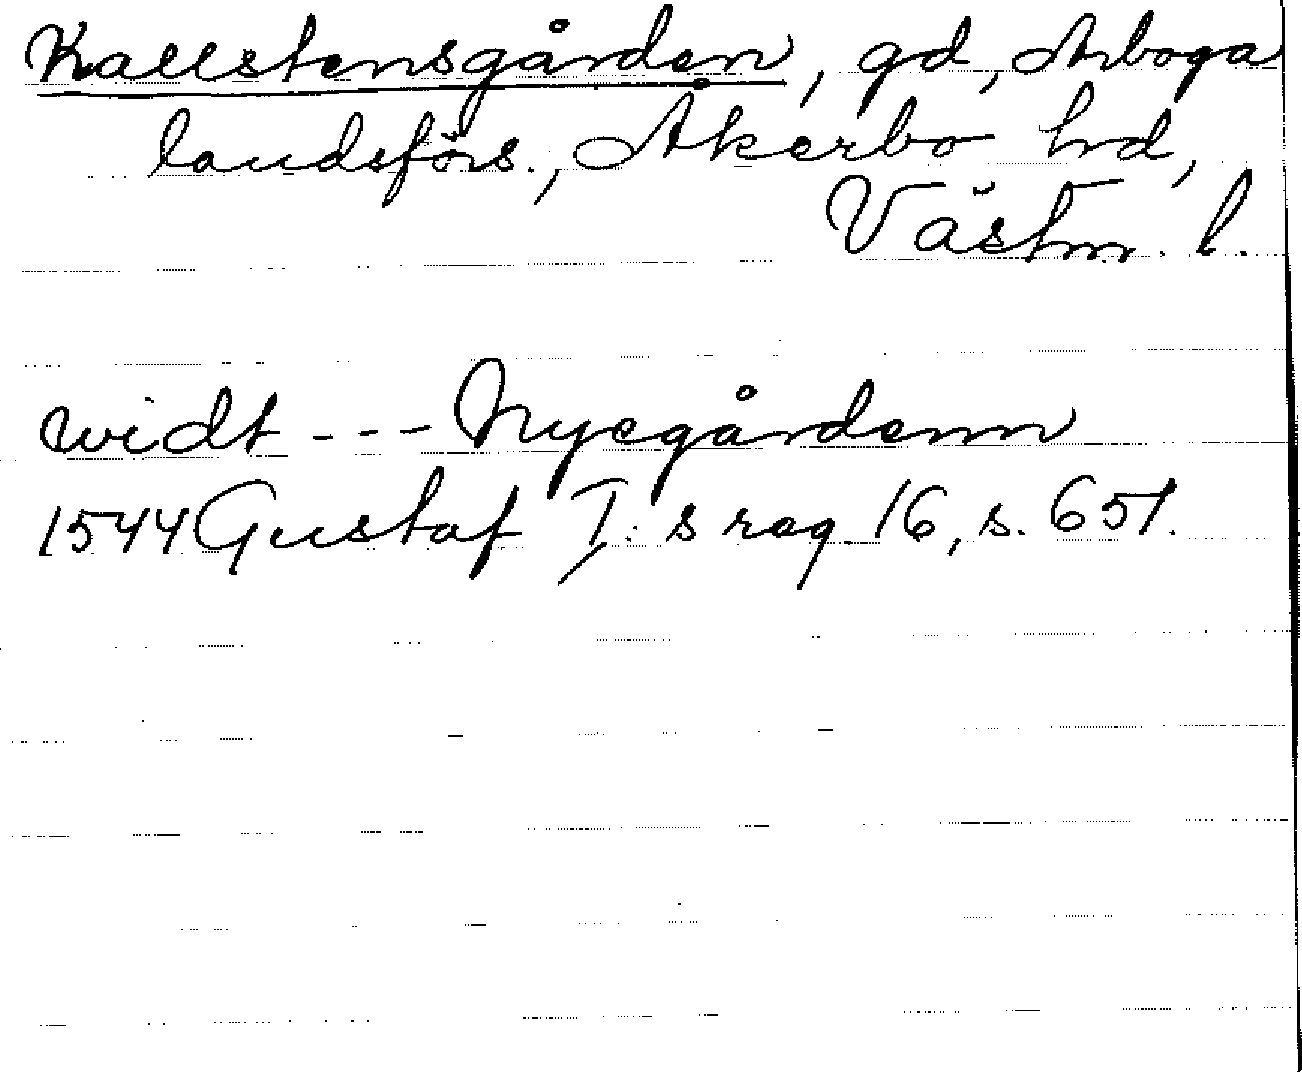 Kallstensgården, gd, Arboga
landsförs., Åkerbo hd,
Västm. l.
widt --- Nyegårdenn
1544 Gustaf I:s reg 16, s. 651.